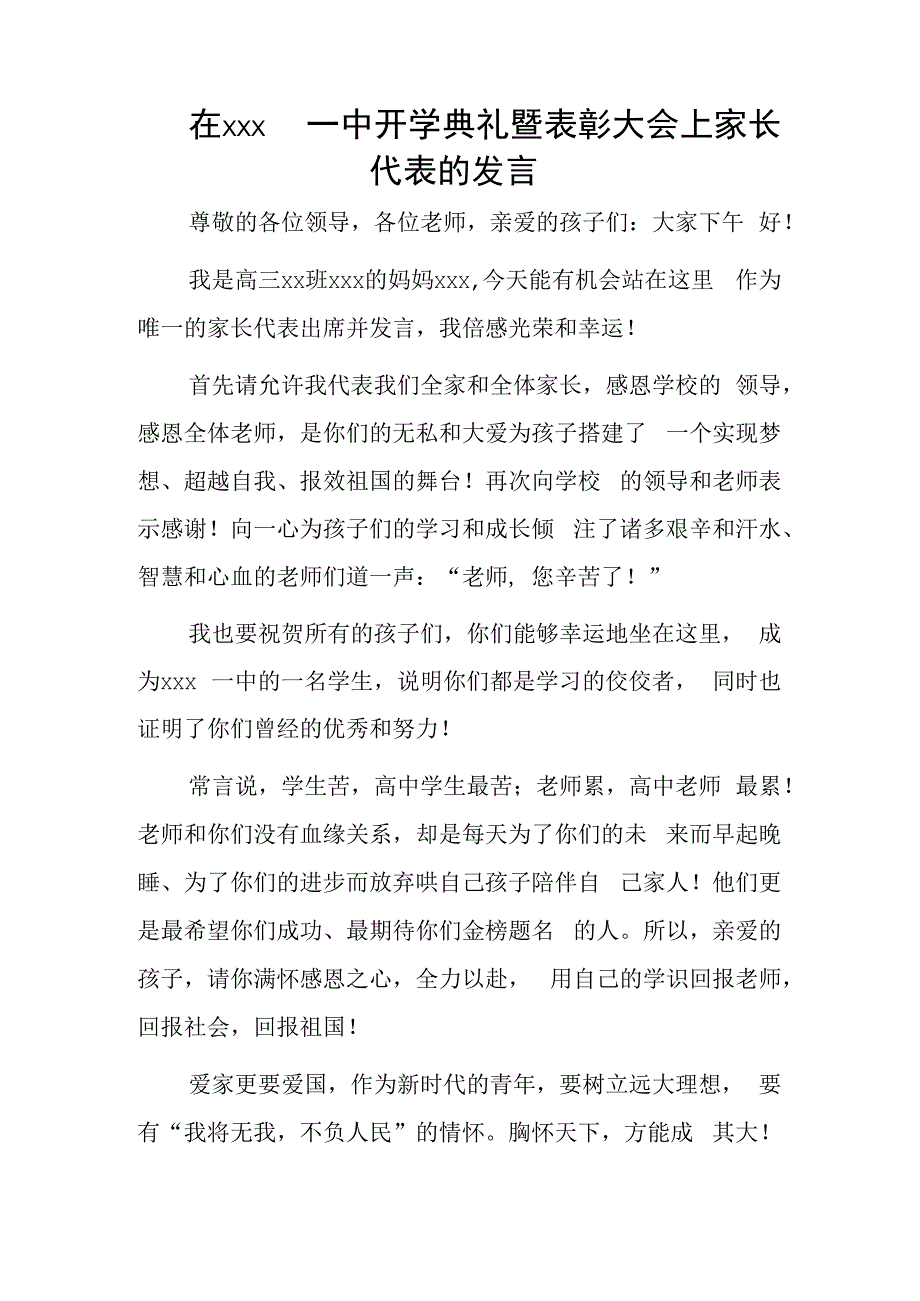 在xxx 一中开学典礼暨表彰大会上家长
代表的发言
尊敬的各位领导，各位老师，亲爱的孩子们：大家下午 好！
我是高三xx班xxx的妈妈xxx,今天能有机会站在这里 作为
唯一的家长代表出席并发言，我倍感光荣和幸运！
首先请允许我代表我们全家和全体家长，感恩学校的 领导，
感恩全体老师，是你们的无私和大爱为孩子搭建了 一个实现梦
想、超越自我、报效祖国的舞台！再次向学校 的领导和老师表
示感谢！向一心为孩子们的学习和成长倾 注了诸多艰辛和汗水、
智慧和心血的老师们道一声：“老师, 您辛苦了！”
我也要祝贺所有的孩子们，你们能够幸运地坐在这里， 成
为xxx 一中的一名学生，说明你们都是学习的佼佼者， 同时也
证明了你们曾经的优秀和努力！
常言说，学生苦，高中学生最苦；老师累，高中老师 最累！
老师和你们没有血缘关系，却是每天为了你们的未 来而早起晚
睡、为了你们的进步而放弃哄自己孩子陪伴自 己家人！他们更
是最希望你们成功、最期待你们金榜题名 的人。所以，亲爱的
孩子，请你满怀感恩之心，全力以赴， 用自己的学识回报老师，
回报社会，回报祖国！
爱家更要爱国，作为新时代的青年，要树立远大理想， 要
有“我将无我，不负人民”的情怀。胸怀天下，方能成 其大！